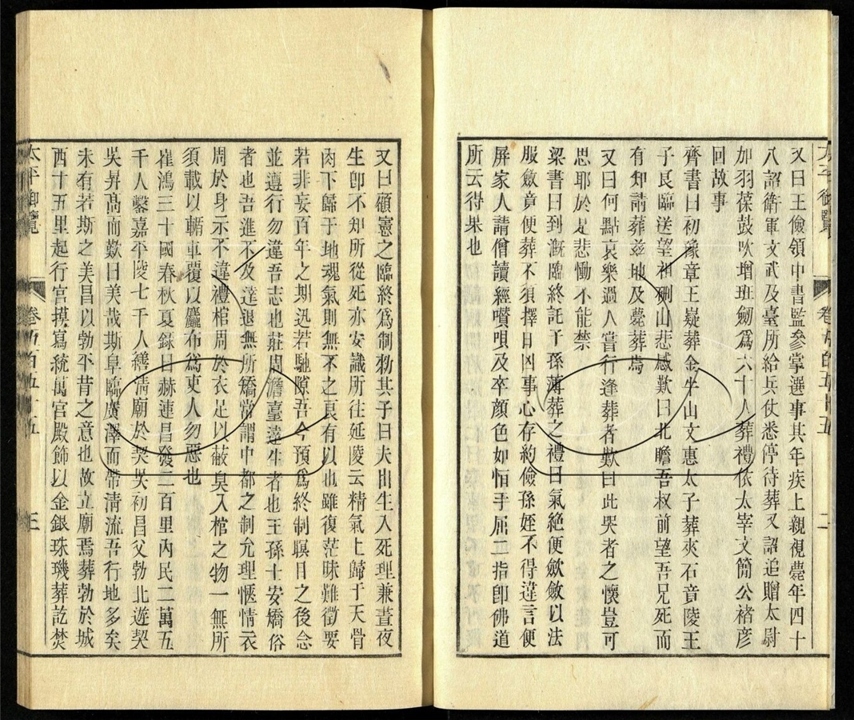 又曰王儉領中書監參掌選事其年疾上親視薨年四十
八詔衛軍文武及臺所給兵仗悉停待葬又詔追贈太尉
加羽葆鼓吹增班劒爲六十人葬禮依太宰文簡公褚彦
回故事
齊書曰初豫章王嶷葬金牛山文惠太子葬夾石竟陵王
子良臨送望祖硎山悲感歎曰北瞻吾叔前望吾兄死而
有知請葬兹地及薨葬焉
又曰何點哀樂過人嘗行逢葬者歎曰此哭者之懷豈可
思耶於是悲慟不能禁
梁書曰到溉臨終託子孫薄葬之禮曰氣絶便歛歛以法
服歛竟便葬不須擇日凶事心存約儉孫姪不得違言便
屏家人請僧讀經讚唄及卒顔色如恒手屈二指卽佛道
所云得果也
太平御覽
卷五百五十五
二
又曰顧憲之臨終爲制勑其子曰夫出生入死理兼晝夜
生卽不知所從死亦安識所往延陵云精氣上歸于天骨
肉下歸于地魂氣則無不之良有以也雖復茫昧難徵要
若非妄百年之期迅若馳隙吾今預爲終制瞑目之後念
並遵行勿違吾志也莊周澹臺達生者也王孫士安矯俗
者也吾進不及達退無所矯常謂中都之制允理愜情衣
周於身示不違禮棺周於衣足以蔽臭入棺之物一無所
須載以輴車覆以麤布爲吏人勿惡也
崔鴻三十國春秋夏録曰赫連昌發二百里内民二萬五
千人鑿嘉平陵七千人繕清廟於契吳初昌父勃北遊契
吳昇高而歎曰美哉斯阜臨廣澤而帶清流吾行地多矣
未有若斯之美昌以勃平昔之意也故立廟焉葬勃於城
西十五里起行宫摸寫統萬宫殿飾以金銀珠璣葬訖焚
太平御覽
卷五百五十五
三